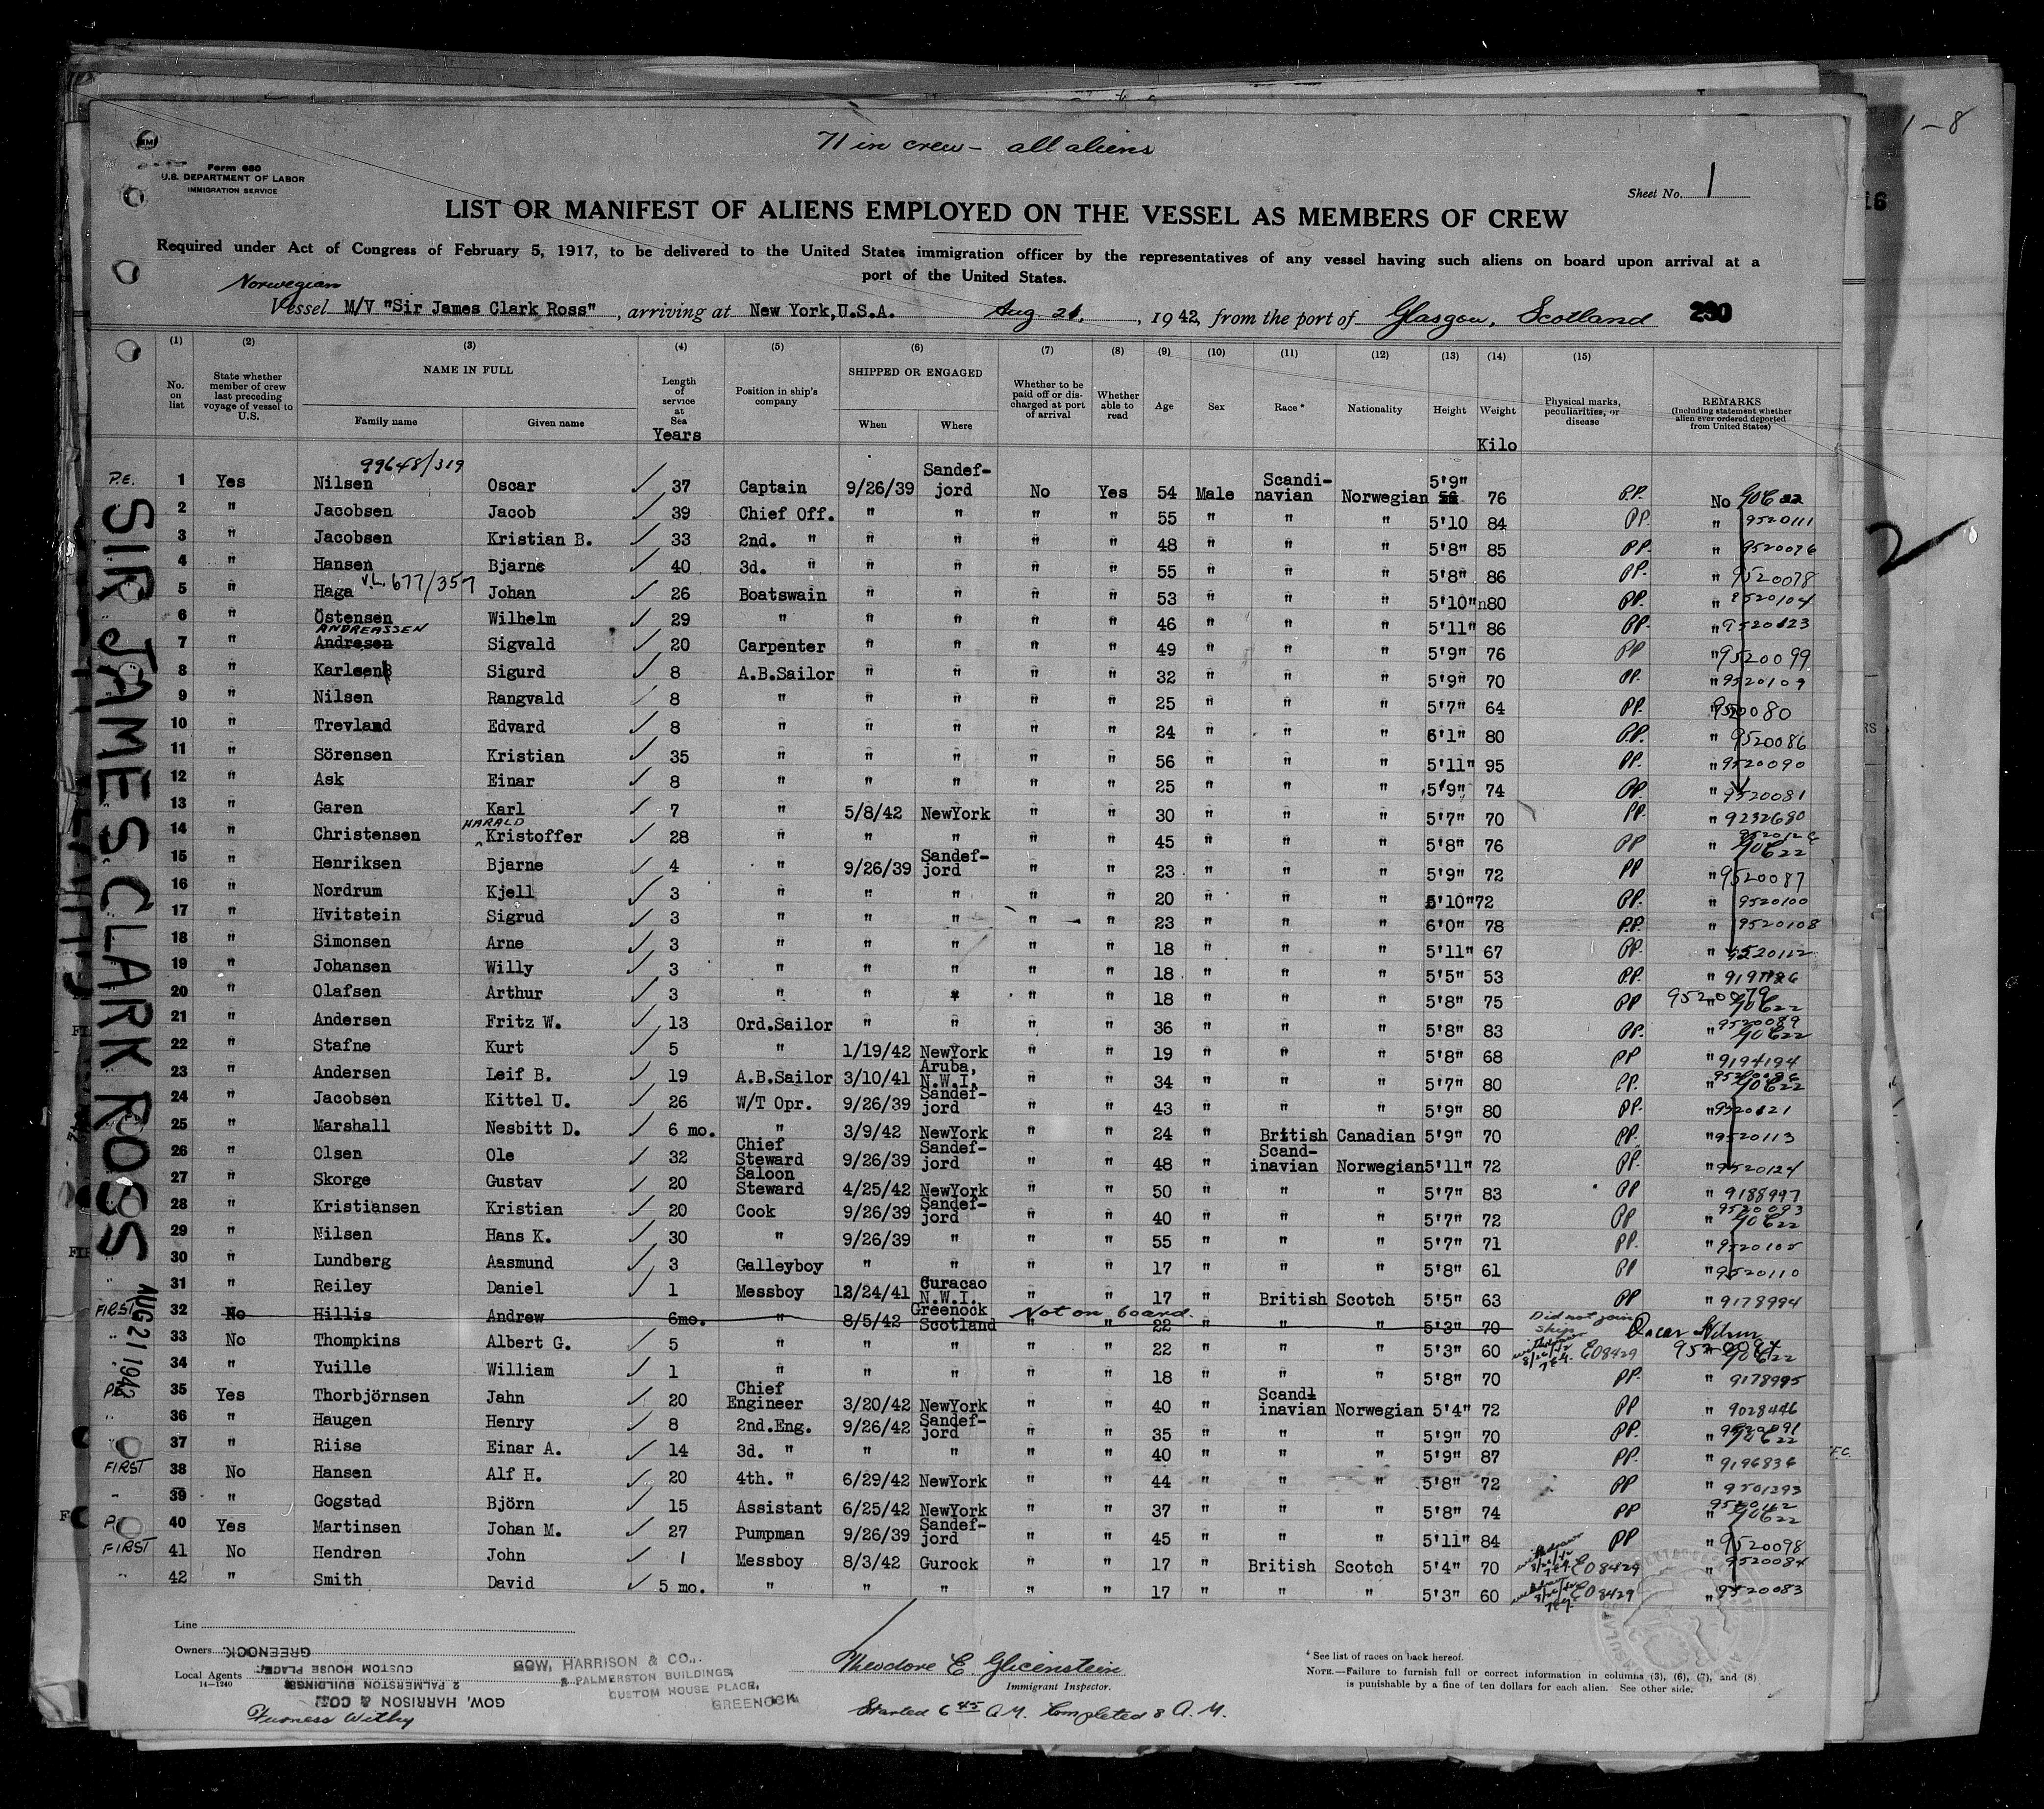 71 in crew - all aliens
1-8
Form 680
U.S. DEPARTMENT OF LABOR
IMMIGRATION SERVICE
Sheet No. 1
LIST OR MANIFEST OF ALIENS EMPLOYED ON THE VESSEL AS MEMBERS OF CREW
Required under Act of Congress of February 5, 1917, to be delivered to the United States immigration officer by the representatives of any vessel having such aliens on board upon arrival at a
port of the United States.
Norwegian
Vessel M/V "Sir James Clark Ross", arriving at New York, U.S.A. Aug 21, 1942, from the port of Glasgow, Scotland 230
(1) (2) (3) (4) (5) (6) (7) (8) (9) (10) (11) (12) (13) (14) (15)
No. on list | State whether member of crew last preceding voyage of vessel to U.S. | NAME IN FULL Family name Given name | Length of service at Sea Years | Position in ship's company | SHIPPED OR ENGAGED When Where | Whether to be paid off or discharged at port of arrival | Whether able to read | Age | Sex | Race* | Nationality | Height | Weight Kilo | Physical marks, peculiarities, or disease | REMARKS (Including statement whether alien ever ordered deported from United States)
99648/319
P.E. 1 Yes Nilsen Oscar ✓ 37 Captain 9/26/39 Sandef-jord No Yes 54 Male Scandi-navian Norwegian 5'9" 76 P.P. No
2 " Jacobsen Jacob ✓ 39 Chief Off. " " " " 55 " " " 5'10 84 PP. " 9520111
3 " Jacobsen Kristian B. ✓ 33 2nd. " " " " " 48 " " " 5'8" 85 PP. " 9520076
4 " Hansen Bjarne ✓ 40 3d. " " " " " 55 " " " 5'8" 86 PP. " 9520078
5 " Haga V.L. 677/357 Johan ✓ 26 Boatswain " " " " 53 " " " 5'10" 80 PP. " 9520104
6 " Östensen Wilhelm ✓ 29 " " " " " 46 " " " 5'11" 86 PP. " 9520123
ANDREASSEN
7 " Andresen Sigvald ✓ 20 Carpenter " " " " 49 " " " 5'9" 76 PP " 9520099
8 " Karlsen Sigurd ✓ 8 A.B.Sailor " " " " 32 " " " 5'9" 70 PP. " 9520109
9 " Nilsen Rangvald ✓ 8 " " " " " 25 " " " 5'7" 64 PP. " 9520080
10 " Trevland Edvard ✓ 8 " " " " " 24 " " " 6'1" 80 P.P. " 9520086
11 " Sörensen Kristian ✓ 35 " " " " " 56 " " " 5'11" 95 PP. " 9520090
12 " Ask Einar ✓ 8 " " " " " 25 " " " 5'9" 74 PP. " 9520081
13 " Garen Karl ✓ 7 " 5/8/42 NewYork " " 30 " " " 5'7" 70 PP. " 9232680
HARALD
14 " Christensen Kristoffer ✓ 28 " " " " " 45 " " " 5'8" 76 PP "
15 " Henriksen Bjarne ✓ 4 " 9/26/39 Sandef-jord " " 23 " " " 5'9" 72 PP " 9520087
16 " Nordrum Kjell ✓ 3 " " " " " 20 " " " 5'10" 72 PP. " 9520100
17 " Hvitstein Sigrud ✓ 3 " " " " " 23 " " " 6'0" 78 P.P. " 9520108
18 " Simonsen Arne ✓ 3 " " " " " 18 " " " 5'11" 67 PP. " 9520122
19 " Johansen Willy ✓ 3 " " " " " 18 " " " 5'5" 53 P.P. "
20 " Olafsen Arthur ✓ 3 " " " " " 18 " " " 5'8" 75 PP 9520079 "
21 " Andersen Fritz W. ✓ 13 Ord.Sailor " " " " 36 " " " 5'8" 83 PP. " 9520089
22 " Stafne Kurt ✓ 5 " 1/19/42 NewYork " " 19 " " " 5'8" 68 PP " 9194194
23 " Andersen Leif B. ✓ 19 A.B.Sailor 3/10/41 Aruba, N.W.I. " " 34 " " " 5'7" 80 P.P. "
24 " Jacobsen Kittel U. ✓ 26 W/T Opr. 9/26/39 Sandef-jord " " 43 " " " 5'9" 80 PP. " 9520121
25 " Marshall Nesbitt D. ✓ 6 mo. " 3/9/42 NewYork " " 24 " British Canadian 5'9" 70 PP. " 9520113
26 " Olsen Ole ✓ 32 Chief Steward 9/26/39 Sandef-jord " " 48 " Scand-inavian Norwegian 5'11" 72 PP. " 9520124
27 " Skorge Gustav ✓ 20 Saloon Steward 4/25/42 NewYork " " 50 " " " 5'7" 83 PP " 9188997
28 " Kristiansen Kristian ✓ 20 Cook 9/26/39 Sandef-jord " " 40 " " " 5'7" 72 PP " 9520093
29 " Nilsen Hans K. ✓ 30 " 9/26/39 " " " 55 " " " 5'7" 71 PP. " 9520105
30 " Lundberg Aasmund ✓ 3 Galleyboy " " " " 17 " " " 5'8" 61 PP " 9520110
31 " Reiley Daniel ✓ 1 Messboy 12/24/41 Curacao N.W.I. " " 17 " British Scotch 5'5" 63 PP " 9178994
FIRST 32 No Hillis Andrew 6mo. " 8/5/42 Greenock Scotland Not on board. " " 22 " " " 5'3" 70 Did not join ship Oscar Nilsen
" 33 No Thompkins Albert G. ✓ 5 " " " " " 22 " " " 5'3" 60 withdrawn 8/22/42 E08429
" 34 " Yuille William ✓ 1 " " " " " 18 " " " 5'8" 70 PP. " 9178995
P.E. 35 Yes Thorbjörnsen Jahn ✓ 20 Chief Engineer 3/20/42 NewYork " " 40 " Scandinavian Norwegian 5'4" 72 PP " 9028446
" 36 " Haugen Henry ✓ 8 2nd.Eng. 9/26/42 Sandef-jord " " 35 " " " 5'9" 70 PP. " 9520091
" 37 " Riise Einar A. ✓ 14 3d. " " " " " 40 " " " 5'9" 87 PP. " 9196836
FIRST 38 No Hansen Alf H. ✓ 20 4th. " 6/29/42 NewYork " " 44 " " " 5'8" 72 PP " 9501293
" 39 " Gogstad Björn ✓ 15 Assistant 6/25/42 NewYork " " 37 " " " 5'8" 74 PP "
P.E. 40 Yes Martinsen Johan M. ✓ 27 Pumpman 9/26/39 Sandef-jord " " 45 " " " 5'11" 84 PP " 9520098
FIRST 41 No Hendren John ✓ 1 Messboy 8/3/42 Gurock " " 17 " British Scotch 5'4" 70 withdrawn 8/22/42 E08429 " 9520084
" 42 " Smith David ✓ 5 mo. " " " " " 17 " " " 5'3" 60 withdrawn 8/22/42 E08429 " 9520083
SIR JAMES CLARK ROSS AUG 21 1942
2
16
Line
Owners
Local Agents
14-1240
GOW, HARRISON & CO.,
2 PALMERSTON BUILDINGS,
CUSTOM HOUSE PLACE,
GREENOCK.
GOW, HARRISON & CO.,
2 PALMERSTON BUILDINGS,
CUSTOM HOUSE PLACE,
GREENOCK
Furness Withy
Theodore E. Glicenstein
Immigrant Inspector.
Started 6 45 A.M. Completed 8 A.M.
* See list of races on back hereof.
NOTE.—Failure to furnish full or correct information in columns (3), (6), (7), and (8)
is punishable by a fine of ten dollars for each alien. See other side.